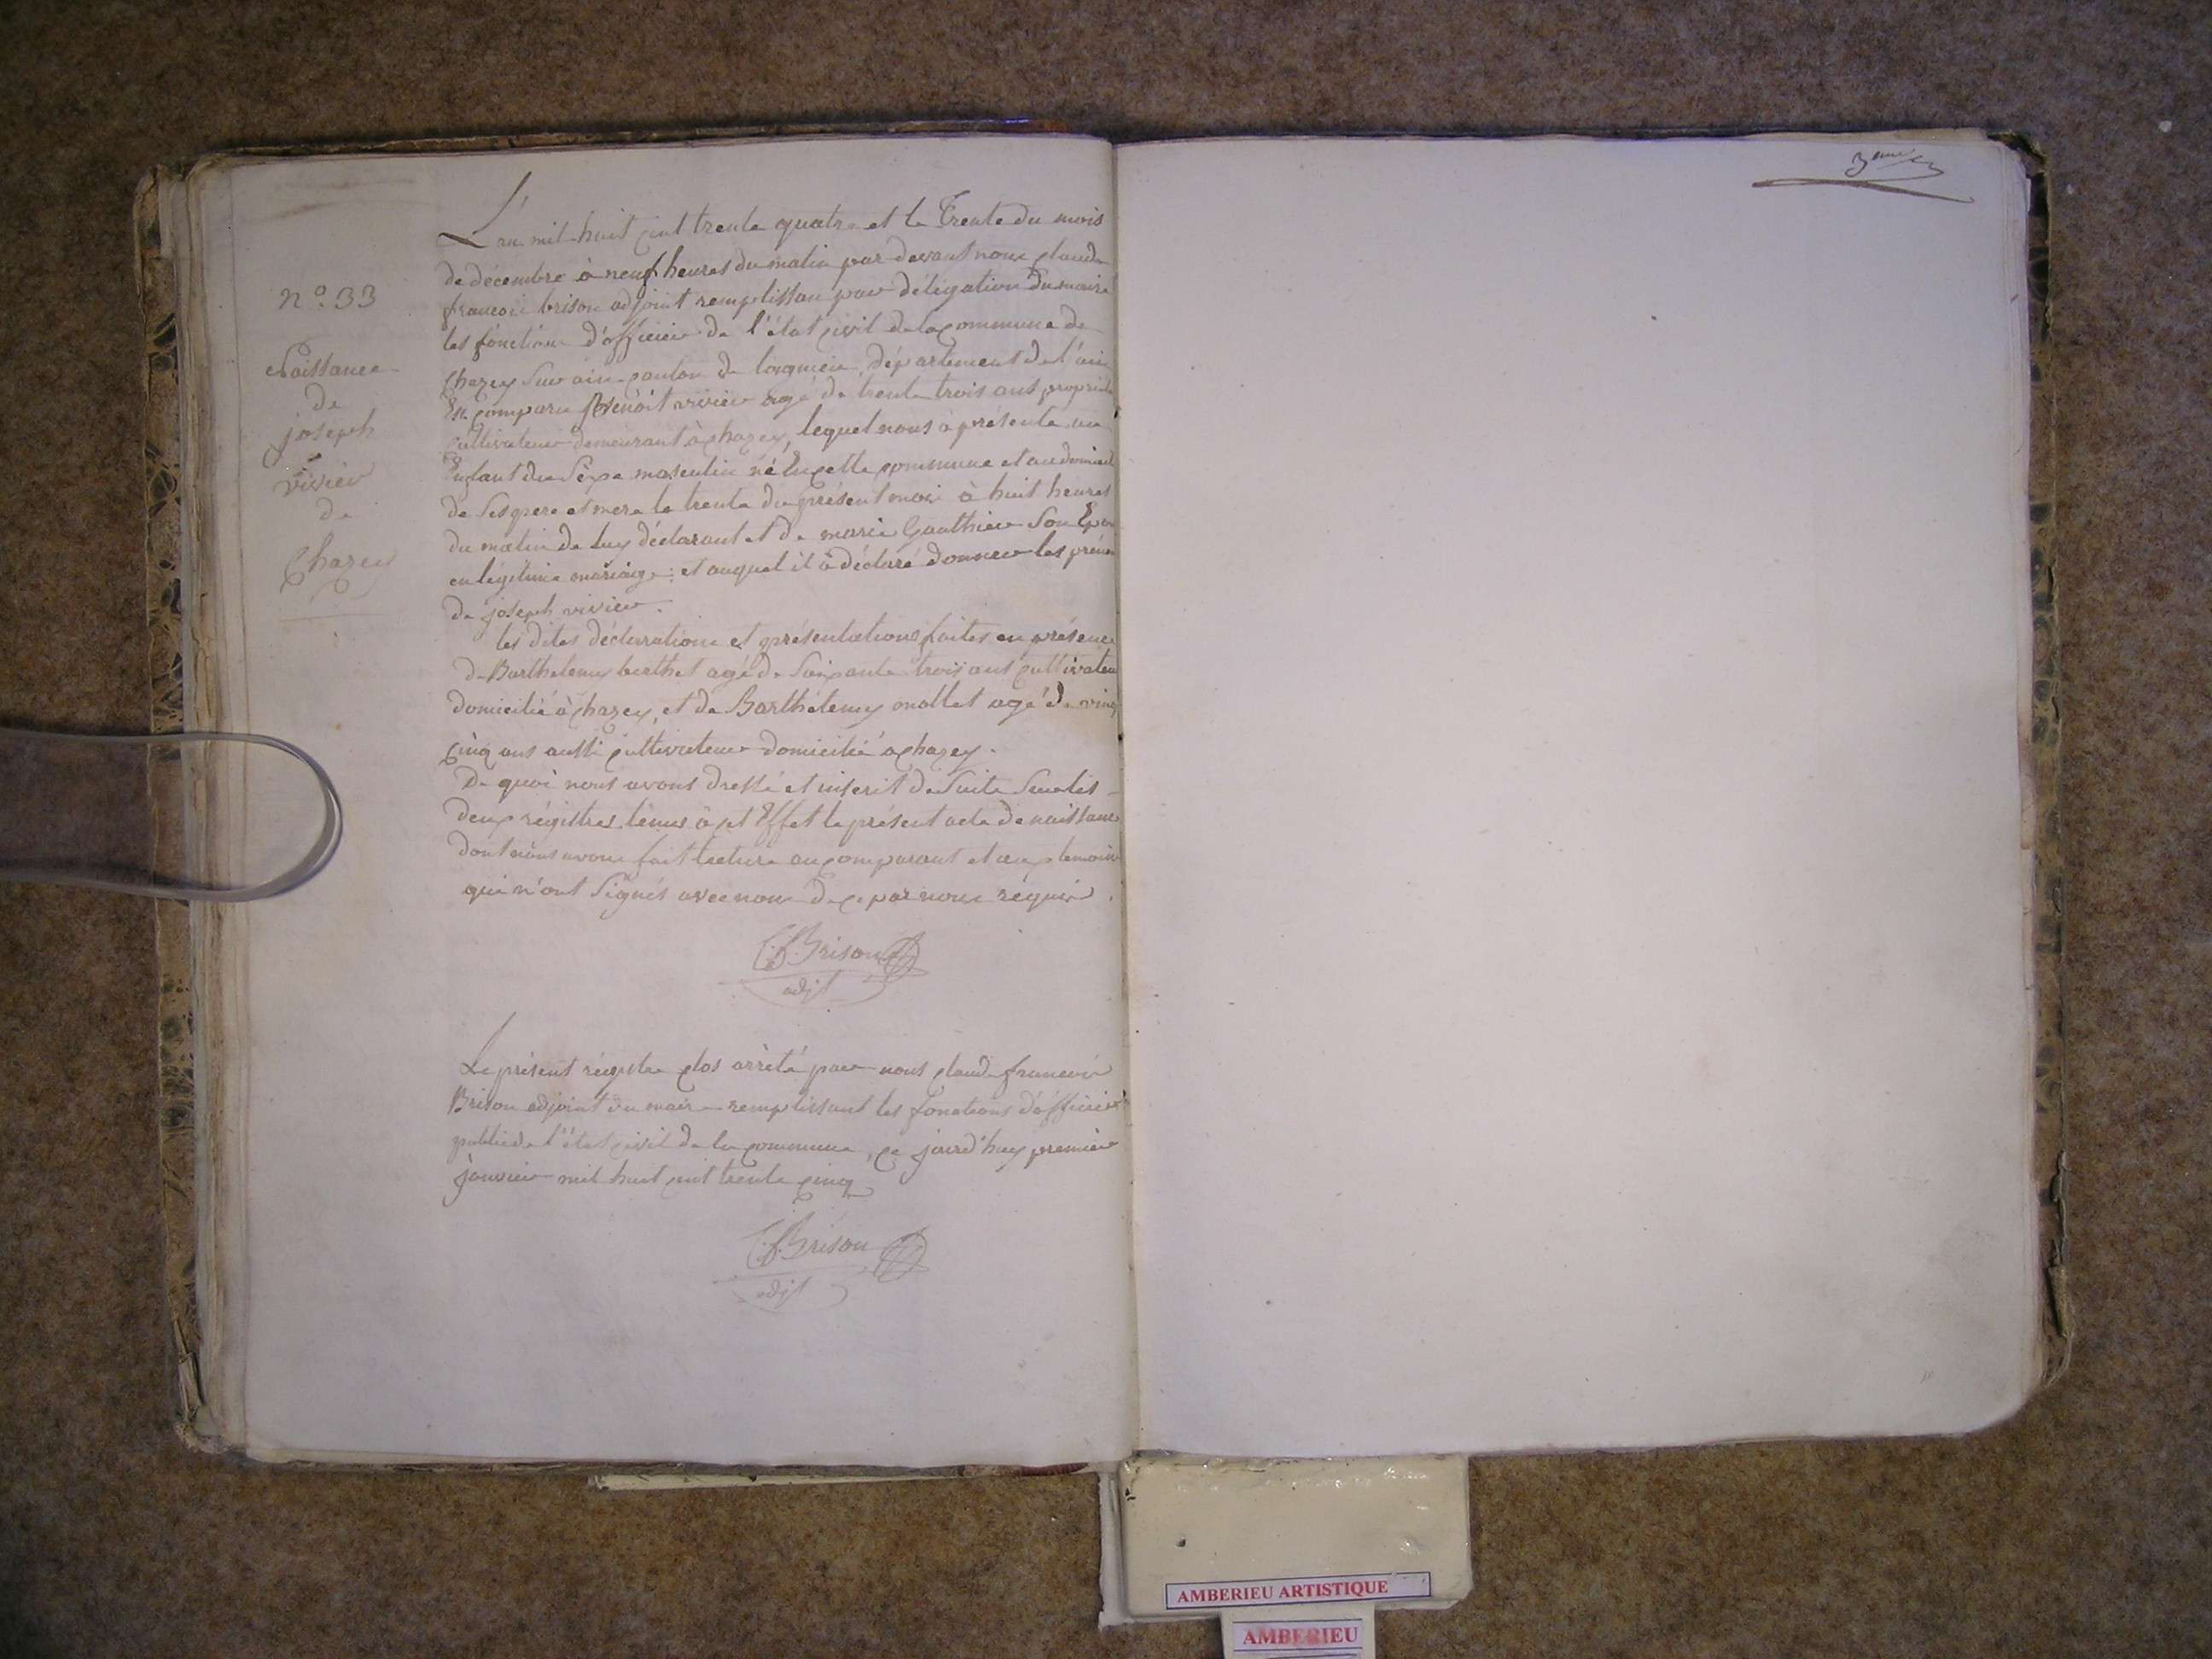 n.º 33
Naissance
de
joseph
vivier
de
Chazey
L'an mil huit cent trente quatre et le Trente du mois
de décembre à neuf heures du matin par devant nous claude
francois brison adjoint remplissan par délégation du maire
les fonctions d'officier de l'état civil de la commune de
Chazey sur ain canton de lagnieu, département de l'ain
Est comparu Benoit vivier agé de trente trois ans propriét
cultivateur demeurant à chazey, lequel nous à présenté un
Enfant du Sexe masculin né En cette commune et au domicil
de Ses pere et mere le trente du présent mois à huit heures
du matin de luy déclarant et de marie Gauthier Son Epou
en légitime mariage ; et auquel il à déclaré donner les prénom
de joseph vivier.
les dites déclarations et présentations faites en présence
de Barthelemy berthet agé de Soixante trois ans cultivateu
domicilié à chazey, et de Barthélemy mollet agé de ving
cinq ans aussi cultivateur domicilié à chazey.
De quoi nous avons dressé et inscrit de Suite Sur les
deux régistres tenus à cet Effet le présent acte de naissance
dont nous avons fait lecture au comparant et aux temoins
qui n'ont Signés avec nous de ce par nous réquis.
C.f. Brison
adjt
Le présent régistre clos arrêté par nous claude francois
Brison adjoint du maire remplissant les fonctions d'officier
public de l'état civil de la commune, ce jourd'huy premier
janvier mil huit cent trente cinq
C.f. Brison
adjt
3eme
AMBERIEU ARTISTIQUE
AMBERIEU